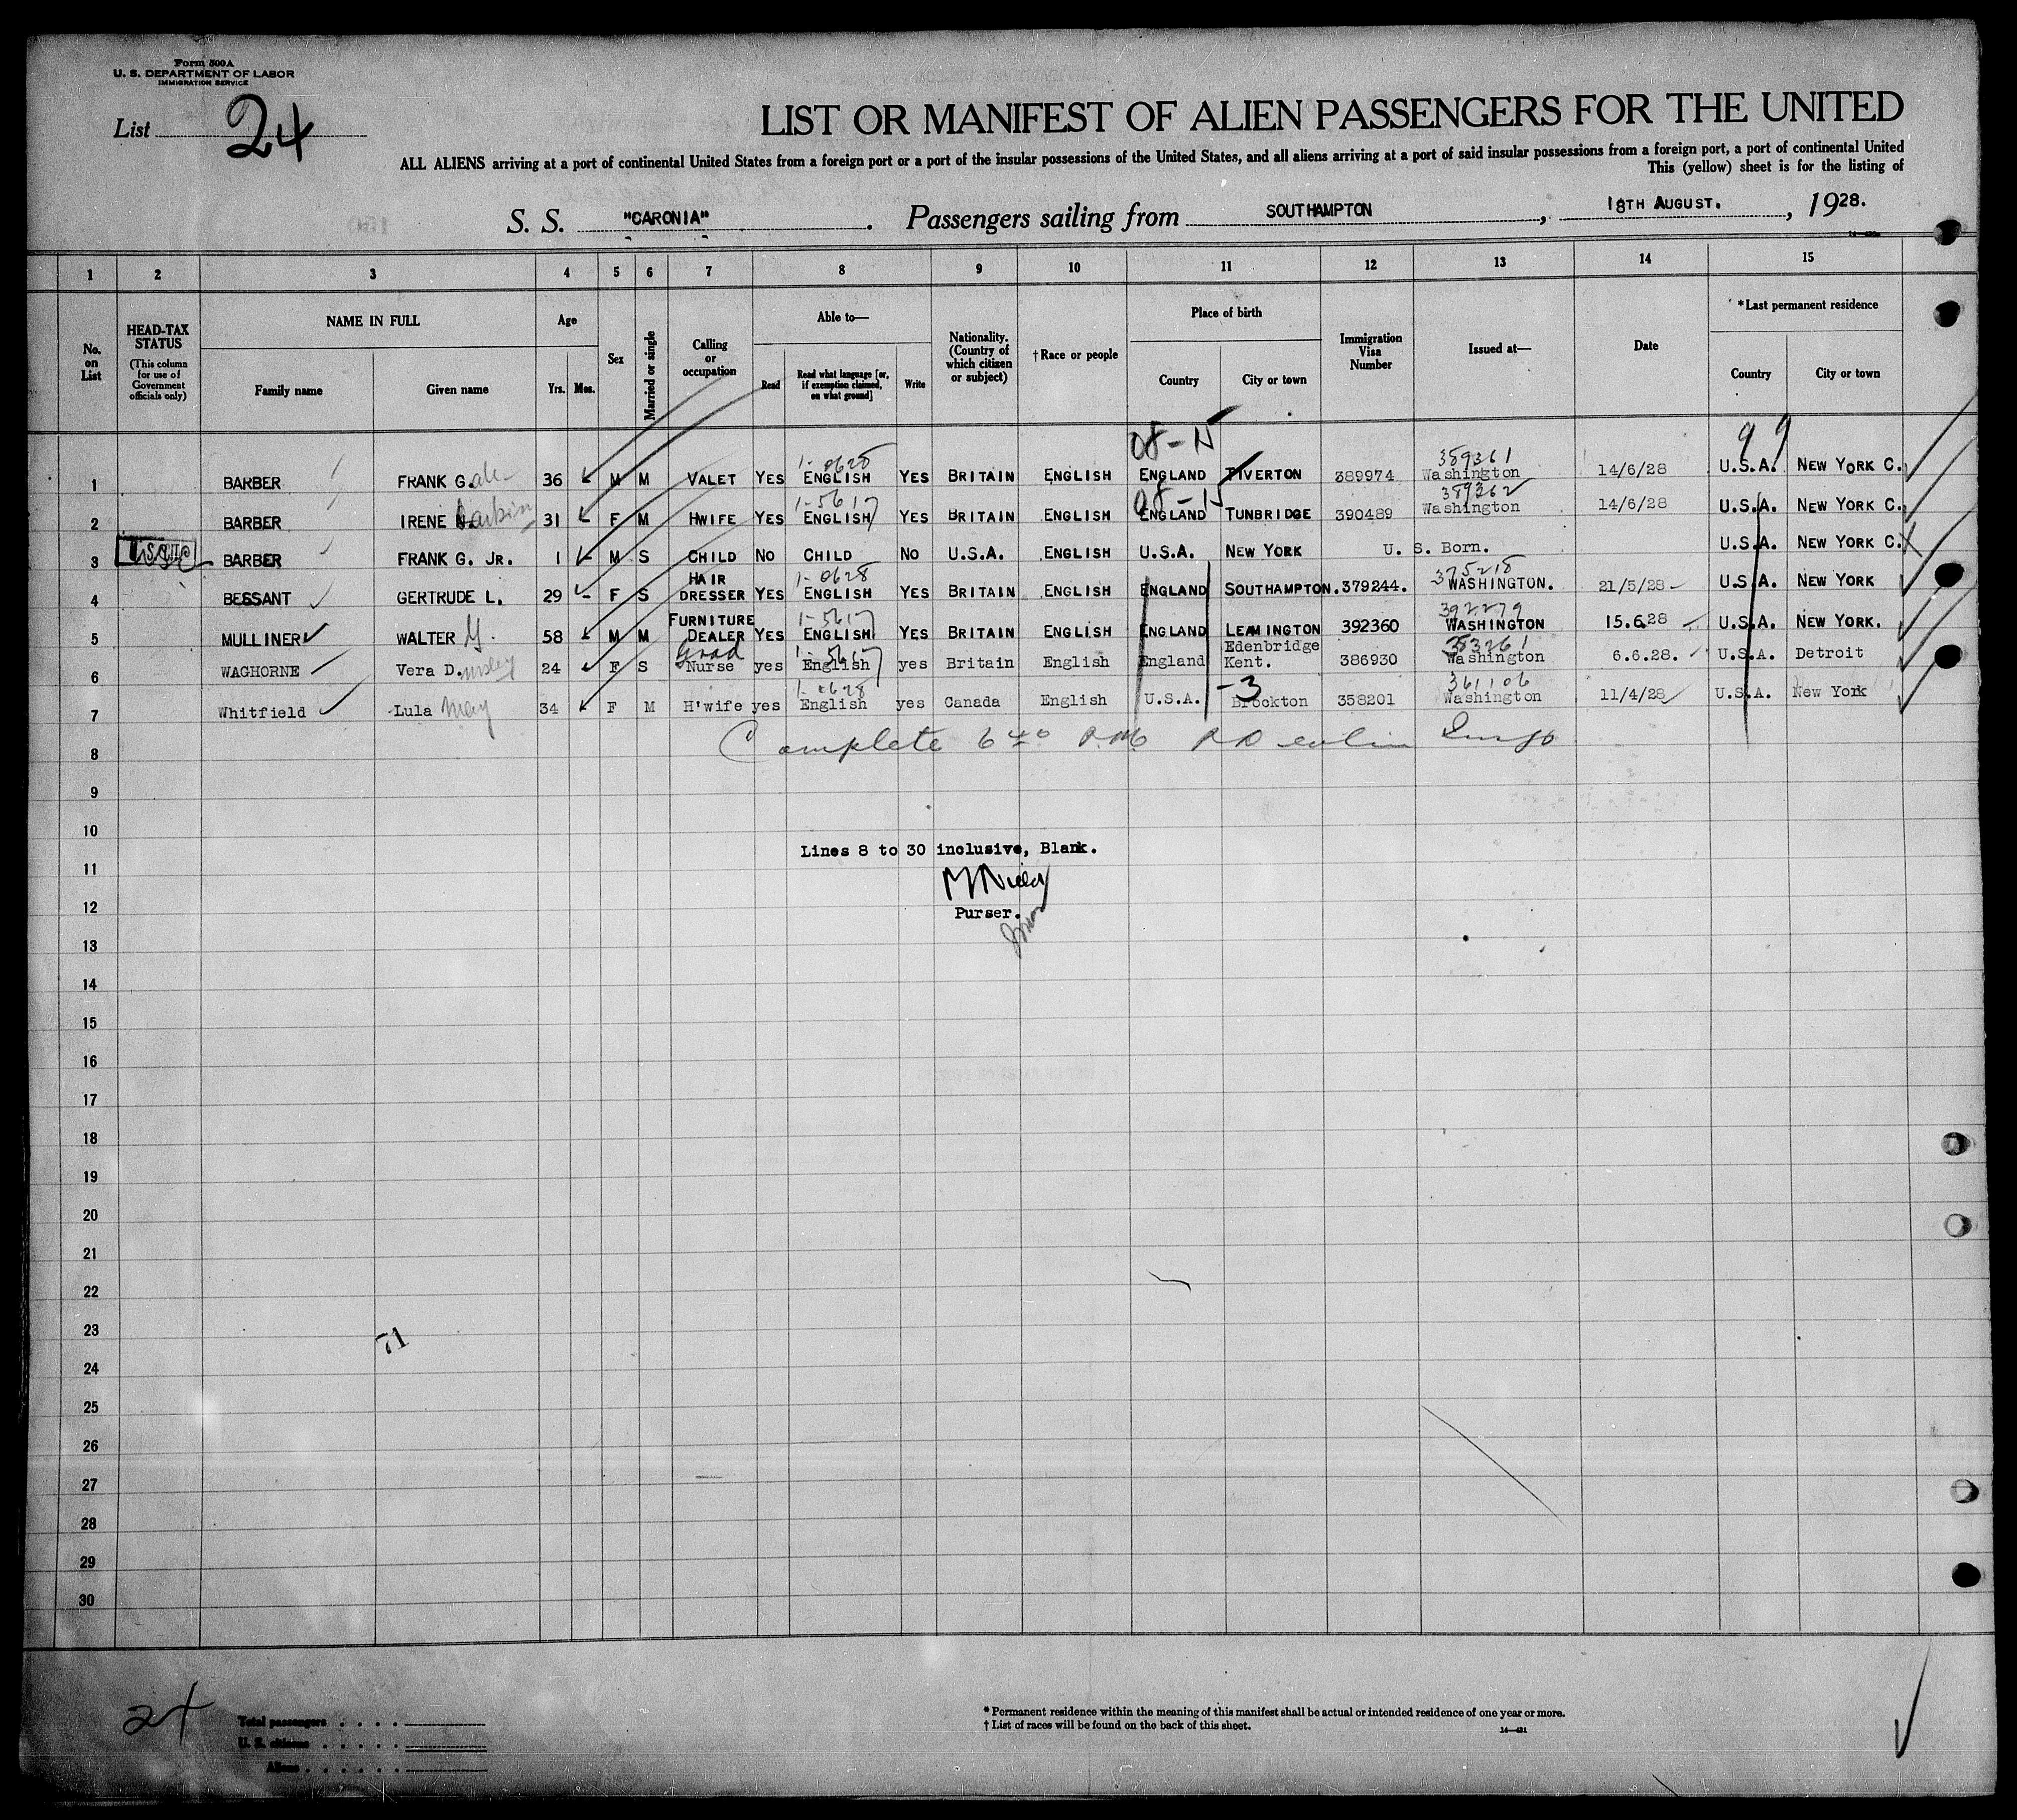 Form 500A
U. S. DEPARTMENT OF LABOR
IMMIGRATION SERVICE
List 24
LIST OR MANIFEST OF ALIEN PASSENGERS FOR THE UNITED
ALL ALIENS arriving at a port of continental United States from a foreign port or a port of the insular possessions of the United States, and all aliens arriving at a port of said insular possessions from a foreign port, a port of continental United
This (yellow) sheet is for the listing of
S. S. "CARONIA". Passengers sailing from SOUTHAMPTON, 18TH AUGUST., 1928.
1 2 3 4 5 6 7 8 9 10 11 12 13 14 15
No. on List
HEAD-TAX STATUS (This column for use of Government officials only)
NAME IN FULL
Family name Given name
Age
Yrs. Mos.
Sex
Married or single
Calling or occupation
Able to—
Read Read what language [or, if exemption claimed, on what ground] Write
Nationality. (Country of which citizen or subject)
†Race or people
Place of birth
Country City or town
Immigration Visa Number
Issued at—
Date
*Last permanent residence
Country City or town
08-15 99
1-0628 389361
1 BARBER FRANK G. 36 M M VALET YES ENGLISH YES BRITAIN ENGLISH ENGLAND TIVERTON 389974 Washington 14/6/28 U.S.A. NEW YORK C.
1-5617 08-15 389362
2 BARBER IRENE 31 F M HWIFE YES ENGLISH YES BRITAIN ENGLISH ENGLAND TUNBRIDGE 390489 Washington 14/6/28 U.S.A. NEW YORK C.
3 BARBER FRANK G. JR. 1 M S CHILD NO CHILD NO U.S.A. ENGLISH U.S.A. NEW YORK U. S. Born. U.S.A. NEW YORK C.
1-0628 375218
4 BESSANT GERTRUDE L. 29 - F S HAIR DRESSER YES ENGLISH YES BRITAIN ENGLISH ENGLAND SOUTHAMPTON. 379244. WASHINGTON. 21/5/28 U.S.A. NEW YORK
1-5617 392279
5 MULLINER WALTER 58 M M FURNITURE DEALER YES ENGLISH YES BRITAIN ENGLISH ENGLAND LEAMINGTON 392360 WASHINGTON 15.6.28 U.S.A. NEW YORK.
Grad 1-5617 383261
6 WAGHORNE Vera D. 24 F S Nurse yes English yes Britain English England Edenbridge Kent. 386930 Washington 6.6.28. U.S.A. Detroit
1-0628 -3 361106
7 Whitfield Lula May 34 F M H'wife yes English yes Canada English U.S.A. Brockton 358201 Washington 11/4/28 U.S.A. New York
8 Complete 6 40 PM
9
10
Lines 8 to 30 inclusive, Blank.
11
12 Purser.
13
14
15
16
17
18
19
20
21
22
23
71
24
25
26
27
28
29
30
24
Total passengers
U. S. citizens
Aliens
* Permanent residence within the meaning of this manifest shall be actual or intended residence of one year or more.
† List of races will be found on the back of this sheet.
14—481